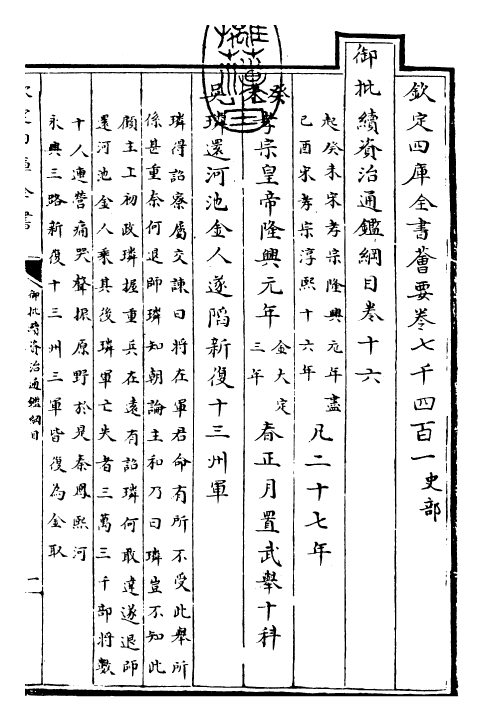 欽定四庫全書薈要卷七千四百一史部
御批續資治通鑑綱目卷十六
起癸未宋孝宗隆興元年盡
己酉宋孝宗淳熙十六年
凡二十七年
癸未
孝宗皇帝隆興元年
金大定
三年
春正月置武舉十科
璘還河池金人遂陷新復十三州軍
璘得詔寮屬交諫曰將在軍君命有所不受此舉所
係甚重奈何退師璘知朝論主和乃曰璘豈不知此
顧主上初政璘握重兵在遠有詔璘何敢違遂退師
還河池金人乘其後璘軍亡失者三萬三千部將數
十人連營痛哭聲振原野於是秦鳳熙河
永興三路新復十三州三軍皆復為金取
御批續資治通鑑綱目
一